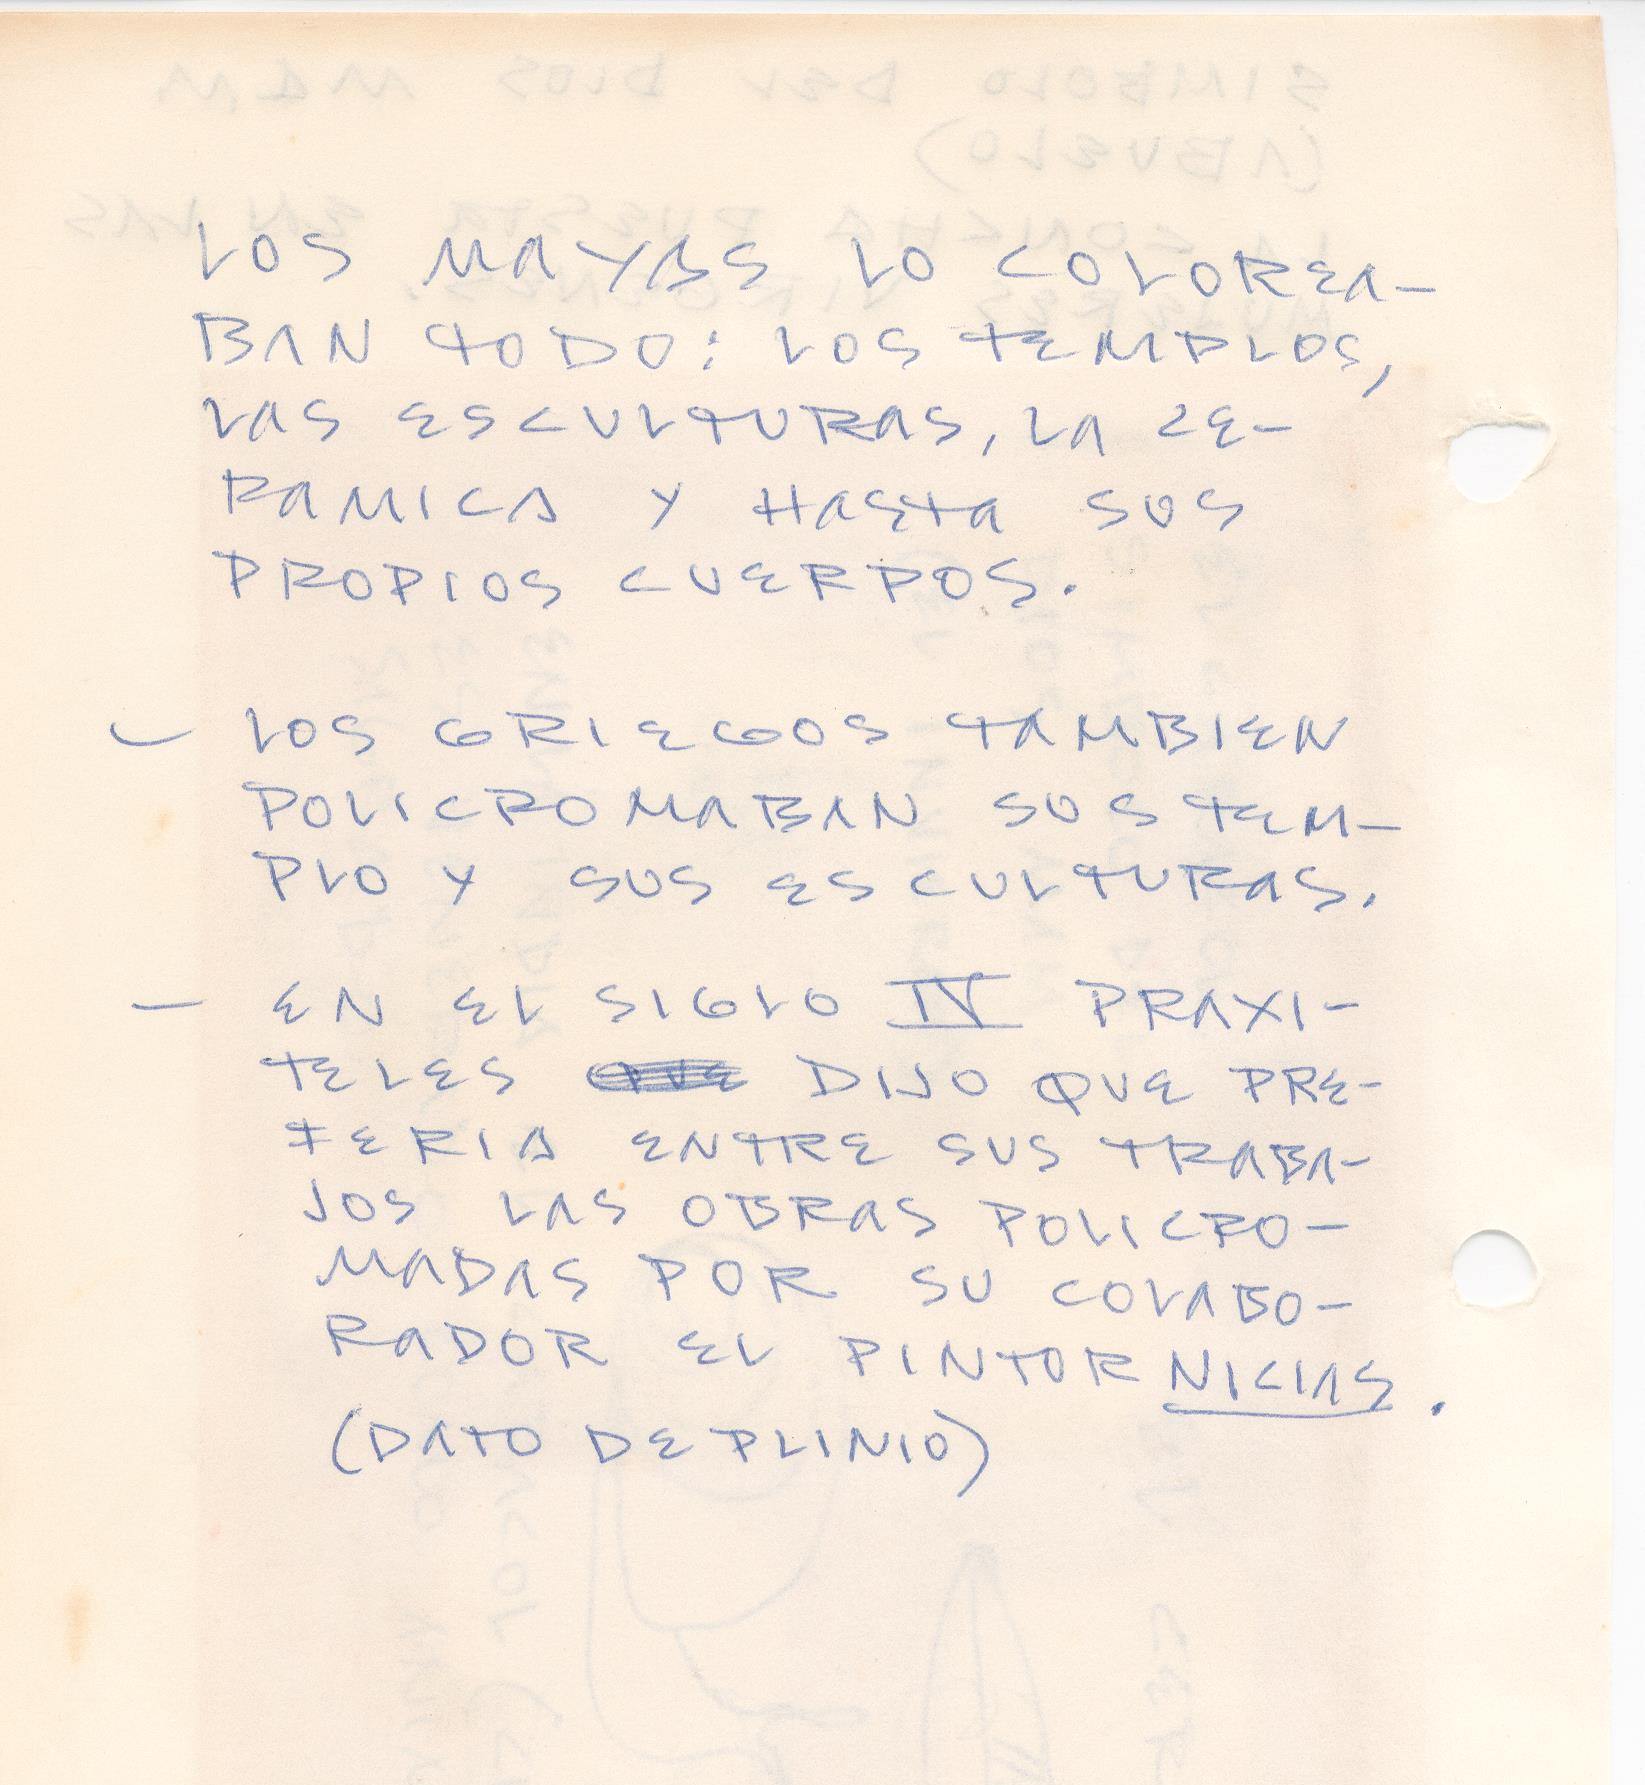 LOS MAYAS LO COLOREA-
BAN TODO: LOS TEMPLOS,
LAS ESCULTURAS, LA CE-
RAMICA Y HASTA SUS
PROPIOS CUERPOS.
- LOS GRIEGOS TAMBIEN
POLICROMABAN SUS TEM-
PLO Y SUS ESCULTURAS.
- EN EL SIGLO IV PRAXI-
TELES QUE DIJO QUE PRE-
FERIA ENTRE SUS TRABA-
JOS LAS OBRAS POLICRO-
MADAS POR SU COLABO-
RADOR EL PINTOR NICIAS.
(DATO DE PLINIO)